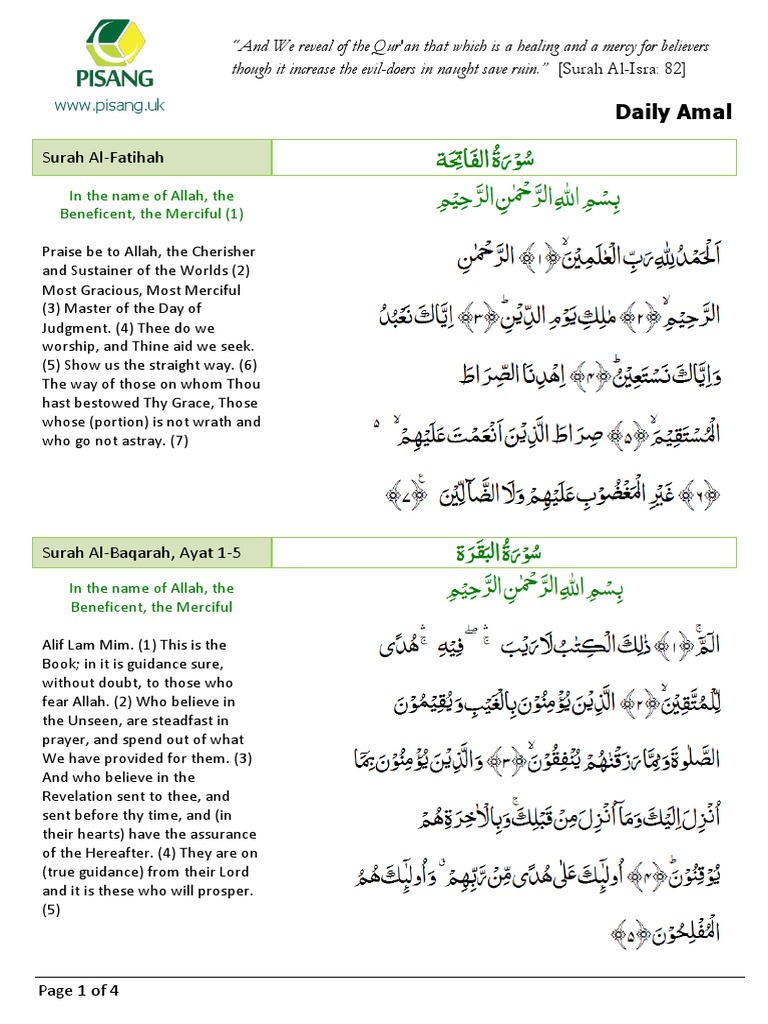 PISANG
www.pisang.uk
“And We reveal of the Qur'an that which is a healing and a mercy for believers
though it increase the evil-doers in naught save ruin.” [Surah Al-Isra: 82]
Daily Amal
Surah Al-Fatihah
سُوْرَةُ الْفَاتِحَة
In the name of Allah, the
Beneficent, the Merciful (1)
Praise be to Allah, the Cherisher
and Sustainer of the Worlds (2)
Most Gracious, Most Merciful
(3) Master of the Day of
Judgment. (4) Thee do we
worship, and Thine aid we seek.
(5) Show us the straight way. (6)
The way of those on whom Thou
hast bestowed Thy Grace, Those
whose (portion) is not wrath and
who go not astray. (7)
بِسْمِ اللّٰهِ الرَّحْمٰنِ الرَّحِيْمِ
اَلْحَمْدُ لِلّٰهِ رَبِّ الْعٰلَمِيْنَۙ﴿۱﴾ الرَّحْمٰنِ
الرَّحِيْمِۙ﴿۲﴾ مٰلِكِ يَوْمِ الدِّيْنِؕ﴿۳﴾ اِيَّاكَ نَعْبُدُ
وَاِيَّاكَ نَسْتَعِيْنُؕ﴿۴﴾ اِهْدِنَا الصِّرَاطَ
الْمُسْتَقِيْمَۙ﴿۵﴾ صِرَاطَ الَّذِيْنَ اَنْعَمْتَ عَلَيْهِمْ ۙ ۵
﴿۶﴾ غَيْرِ الْمَغْضُوْبِ عَلَيْهِمْ وَلَا الضَّآلِّيْنَ ﴿۷﴾
Surah Al-Baqarah, Ayat 1-5
سُوْرَةُ الْبَقَرَة
In the name of Allah, the
Beneficent, the Merciful
Alif Lam Mim. (1) This is the
Book; in it is guidance sure,
without doubt, to those who
fear Allah. (2) Who believe in
the Unseen, are steadfast in
prayer, and spend out of what
We have provided for them. (3)
And who believe in the
Revelation sent to thee, and
sent before thy time, and (in
their hearts) have the assurance
of the Hereafter. (4) They are on
(true guidance) from their Lord
and it is these who will prosper.
(5)
بِسْمِ اللّٰهِ الرَّحْمٰنِ الرَّحِيْمِ
الٓمّٓۚ﴿۱﴾ ذٰلِكَ الْكِتٰبُ لَا رَيْبَ ۛۚ ۖ فِيْهِ ۛۚ هُدًى
لِّلْمُتَّقِيْنَۙ﴿۲﴾ الَّذِيْنَ يُؤْمِنُوْنَ بِالْغَيْبِ وَيُقِيْمُوْنَ
الصَّلٰوةَ وَمِمَّا رَزَقْنٰهُمْ يُنْفِقُوْنَۙ﴿۳﴾ وَالَّذِيْنَ يُؤْمِنُوْنَ بِمَآ
اُنْزِلَ اِلَيْكَ وَمَآ اُنْزِلَ مِنْ قَبْلِكَۚ وَبِالْاٰخِرَةِ هُمْ
يُوْقِنُوْنَؕ﴿۴﴾ اُولٰٓئِكَ عَلٰى هُدًى مِّنْ رَّبِّهِمْ ۗ وَاُولٰٓئِكَ هُمُ
الْمُفْلِحُوْنَ﴿۵﴾
Page 1 of 4